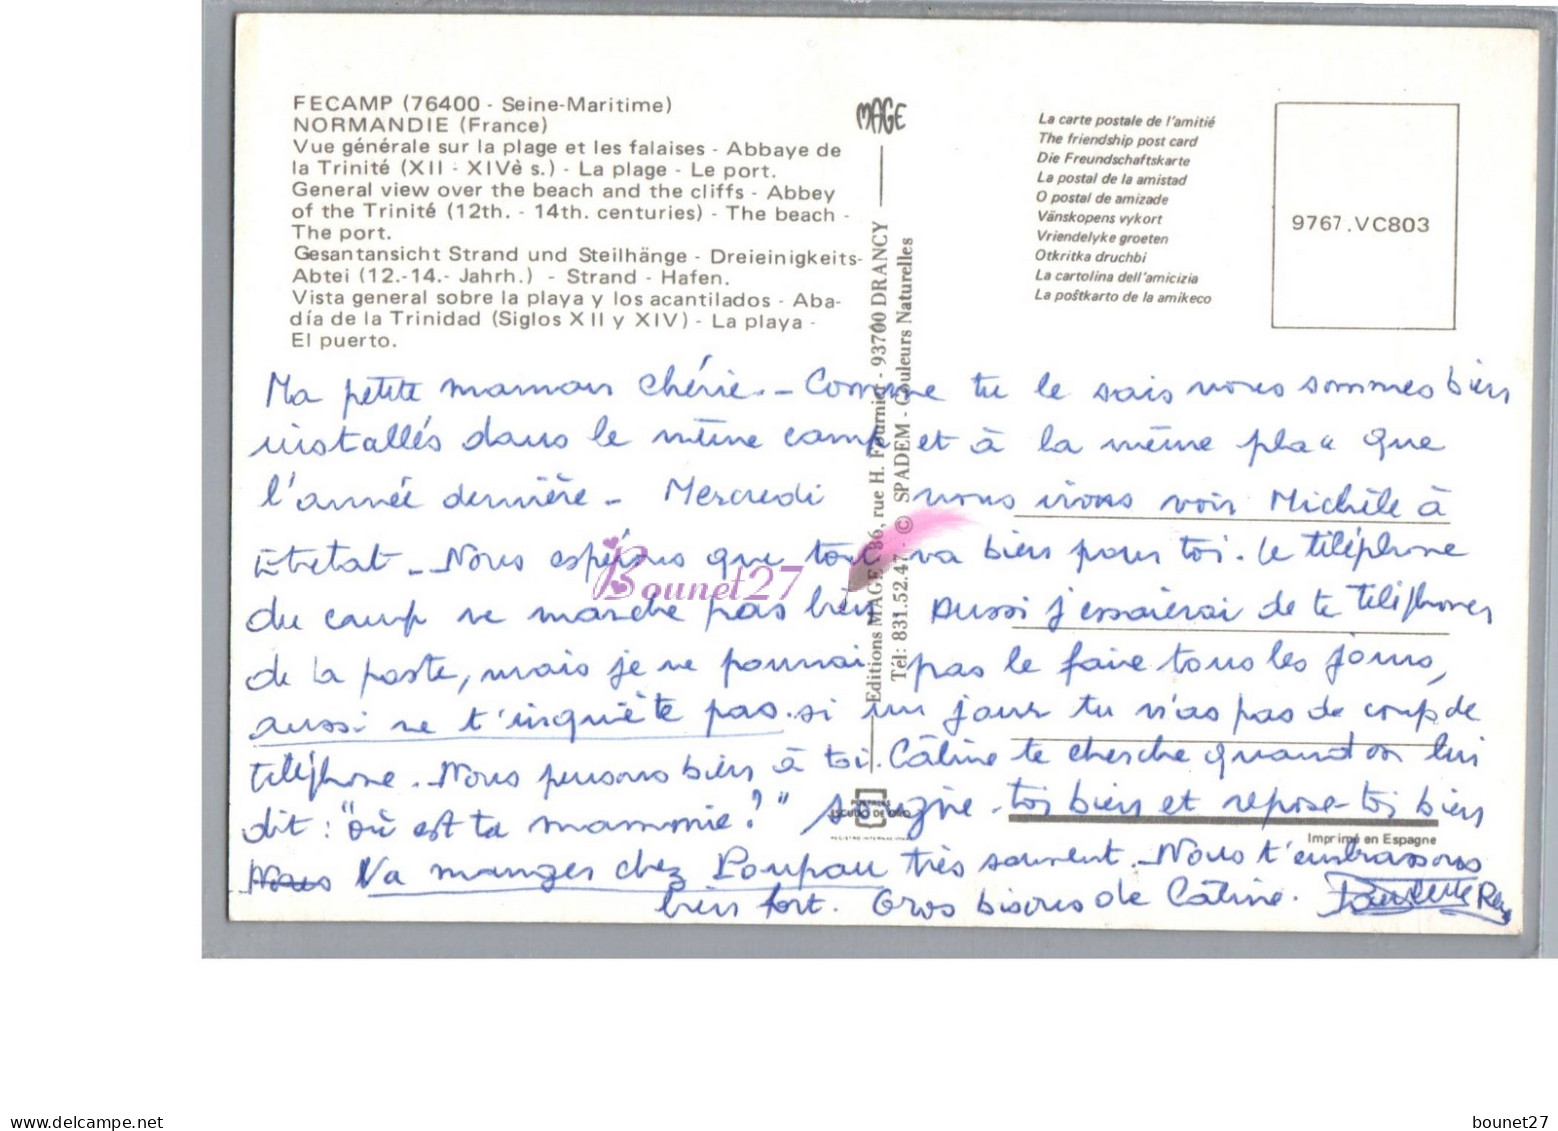 FECAMP (76400 - Seine-Maritime)
NORMANDIE (France)
Vue générale sur la plage et les falaises - Abbaye de
la Trinité (XII - XIVè s.) - La plage - Le port.
General view over the beach and the cliffs - Abbey
of the Trinité (12th. - 14th. centuries) - The beach -
The port.
Gesantansicht Strand und Steilhänge - Dreieinigkeits-
Abtei (12.-14.- Jahrh.) - Strand - Hafen.
Vista general sobre la playa y los acantilados - Aba-
día de la Trinidad (Siglos XII y XIV) - La playa -
El puerto.
MAGE
Editions MAGE - 36, rue H. Fournier - 93700 DRANCY
Tél: 831.52.47 - © SPADEM - Couleurs Naturelles
La carte postale de l'amitié
The friendship post card
Die Freundschaftskarte
La postal de la amistad
O postal de amizade
Vänskopens vykort
Vriendelyke groeten
Otkritka druchbi
La cartolina dell'amicizia
La poŝtkarto de la amikeco
9767.VC803
Ma petite maman chérie.- Comme tu le sais nous sommes bien
installés dans le même camp et à la même place que
l'année dernière - Mercredi nous irons voir Michèle à
Etretat - Nous espérons que tout va bien pour toi. Le téléphone
du camp ne marche pas bien aussi j'essaierai de te téléphoner
de la poste, mais je ne pourrai pas le faire tous les jours,
aussi ne t'inquiète pas si un jour tu n'as pas de coup de
téléphone. Nous pensons bien à toi. Câline te cherche quand on lui
dit : "où est ta mammie ?" Soigne-toi bien et repose-toi bien
Nous Va manger chez Poupau très souvent. Nous t'embrassons
bien fort. Gros bisous de Câline. Paulette
POSTALES
ESCUDO DE ORO
Imprimé en Espagne
Bounet27
www.delcampe.net
bounet27